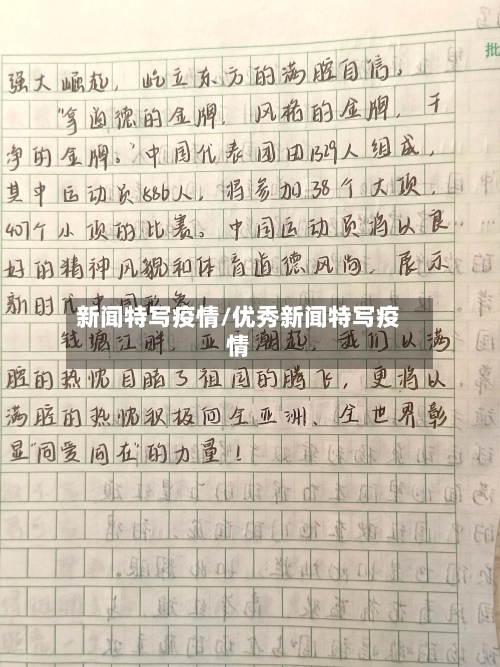 强大崛起,屹立东方的满腔自信。
“拿道德的金牌,风格的金牌,干
净的金牌。”中国代表团由1329人组成,
其中运动员886人,将参加38个大项,
407个小项的比赛。中国运动员将以良
好的精神风貌和体育道德风尚,展示
新时代中国形象!
新闻特写疫情/优秀新闻特写疫
情
钱塘江畔,亚潮起,我们以满
腔的热忱目睹了祖国的腾飞,更将以
满腔的热忱积极向全亚洲、全世界彰
显“同爱同在”的力量!
批